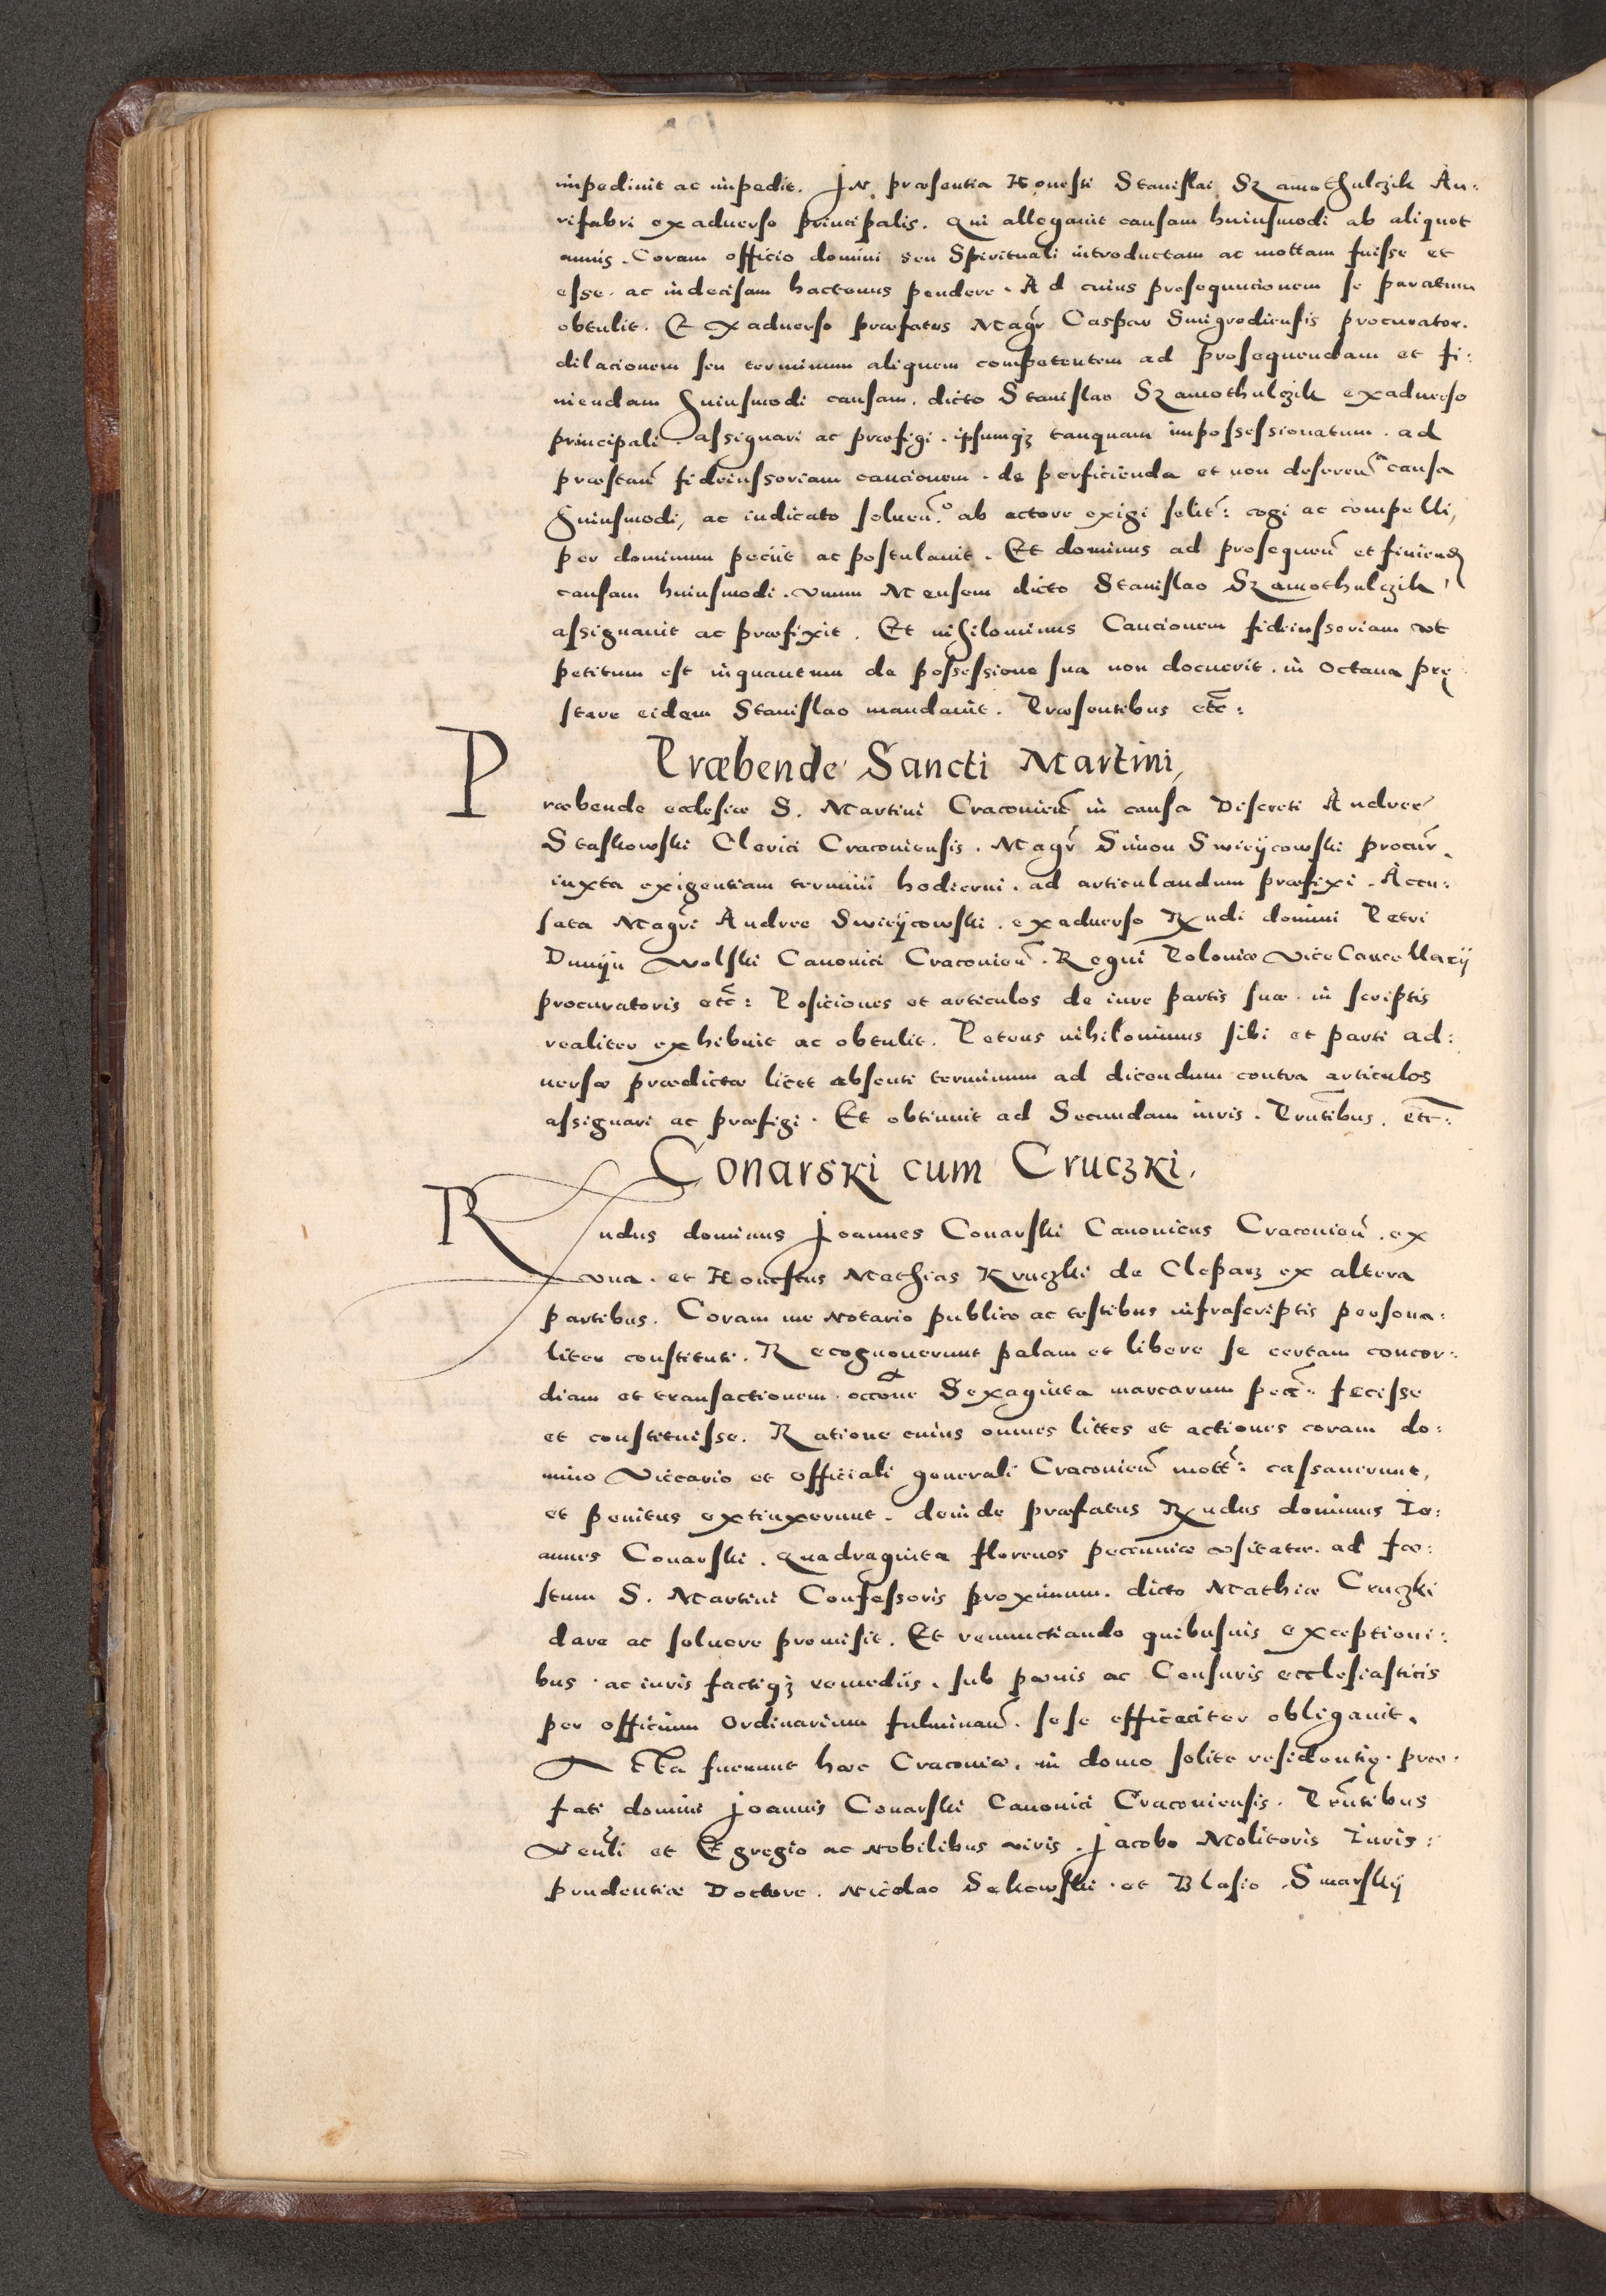 impediuit ac impedit. In præsentia Honesti Stanislai Szamothulczik Au:
rifabri exaduerso principalis. Qui allegauit causam huiusmodi ab aliquot
annis. Coram officio domini seu Spirituali introductam ac mottam fuisse et
esse. ac indecisam hactenus pendere. Ad cuius prosequucionem se paratum
obtulit. Et exaduerso præfatus Magr̃ Caspar Smigrodiensis procurator.
dilacionem seu terminum aliquem competentem ad prosequendam et fi:
niendam huiusmodi causam. dicto Stanislao Szamothulczik exaduerso
principali. assignari ac præfigi. ipsumqꝫ tanquam impossessionatum. ad
præstañ fideiussoriam caucionem. de perficienda et non desereñᵃ causa
huiusmodi, ac iudicato solueñ.º ab actore exigi solit̃: cogi ac compelli,
per dominum peciit ac postulauit. Et dominus ad prosequeñ et finiend
causam huiusmodi. vnum Mensem dicto Stanislao Szamothulczik,
assignauit ac præfixit. Et nihilominus Caucionem fideiussoriam vt
petitum est inquantum de possessione sua non docuerit. in Octaua pre
stare eidem Stanislao mandauit. Præsentibus etc̃:
Præbende Sancti Martini,
Præbende ecclesiæ S. Martini Cracouieñ in causa Discreti Andreę
Staskowski Clerici Cracouiensis. Magr̃ Simon Swieÿcowski procur̃.
iuxta exigentiam termini hodierni. ad articulandum præfixi. Accu:
sata Magr̃i Andree Swieÿcowski. exaduerso Rndi domini Petri
Duniÿn Wolski Canonici Cracouieñ. Regni Poloniæ ViceCancellarÿ
procuratoris etc̃: Posiciones et articulos de iure partis suæ. in scriptis
realiter exhibuit ac obtulit. Petens nihilominus sibi et parti ad:
uersæ prædictæ licet absenti terminum ad dicendum contra articulos
assignari ac præfigi. Et obtinuit ad Secundam iuris. Prñtibus. etc̃:
Conarski cum Cruczki,
Rndus dominus Joannes Conarski Canonicus Cracouieñ. ex
vna. et Honestus Mathias Kruczki de Cleparz ex altera
partibus. Coram me Notario publico ac testibus infrascriptis persona:
liter constituti. Recognouerunt palam et libere se certam concor:
diam et transactionem. occõne Sexaginta marcarum pecc̃: fecisse
et constituisse. Ratione cuius omnes littes et actiones coram do:
mino Viccario et Officiali generali Cracouieñ mott̃: cassauerunt,
et penitus extinxerunt. deinde præfatus Rndus dominus Io:
annes Conarski. Quadraginta florenos pecunniæ vsitatæ. ad fæ:
stum S. Martini Confessoris proximum. dicto Mathiæ Cruczki
dare ac soluere promisit. Et renunctiando quibusuis exceptioni:
bus. ac iuris factiqꝫ remediis. sub pœnis ac Censuris ecclesiasticis
per officium Ordinarium fulminañ. sese efficaciter obligauit.
Acta fuerunt hæc Cracouiæ. in domo solite residentię. præ:
fati domini Joannis Conarski Canonici Cracouiensis. Prñtibus
Veñli et Egregio ac Nobilibus viris. Jacobo Molitoris Iuris:
prudentiæ Doctore. Nicolao Sekowski. et Blasio Smarskÿ